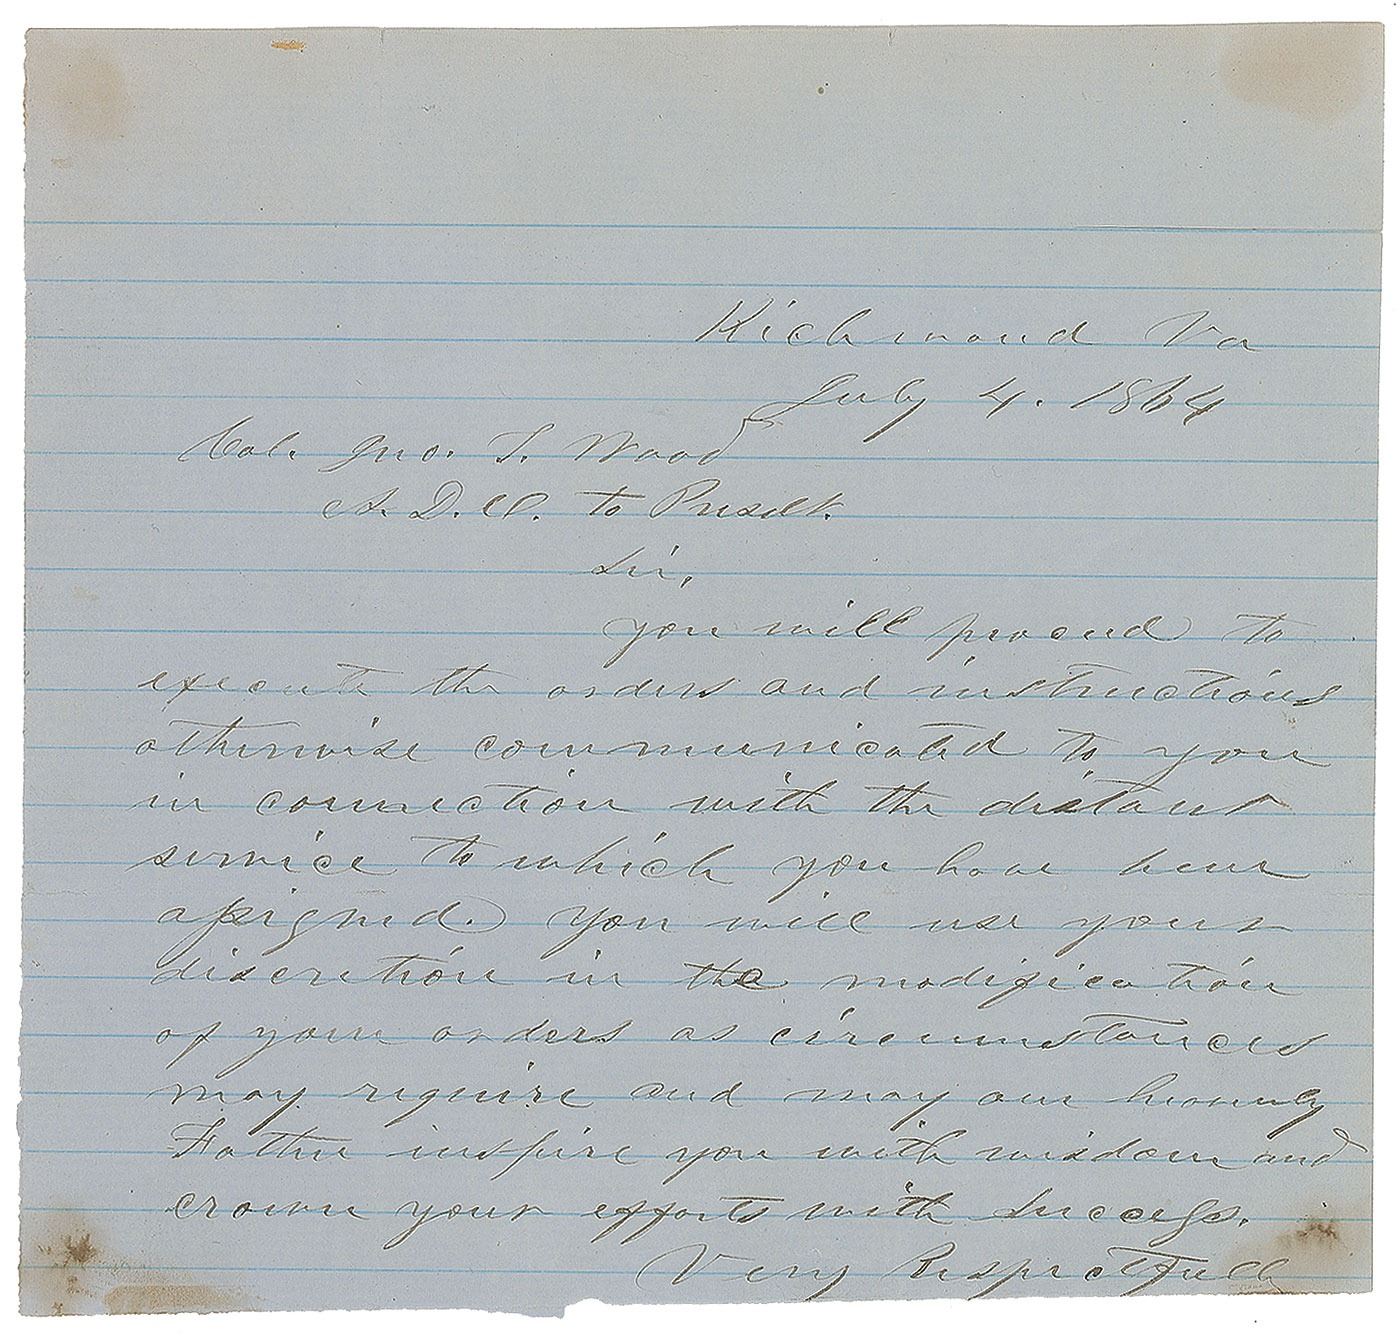 Richmond Va
July 4. 1864
Col. Jno. T. Wood
A. D. C. to Presdt.
Sir,
You will proceed to
execute the orders and instructions
otherwise communicated to you
in connection with the distant
service to which you have been
assigned. You will use your
discretion in the modification
of your orders as circumstances
may require and may our heavenly
Father inspire you with wisdom and
crown your efforts with success.
Very Respectfully